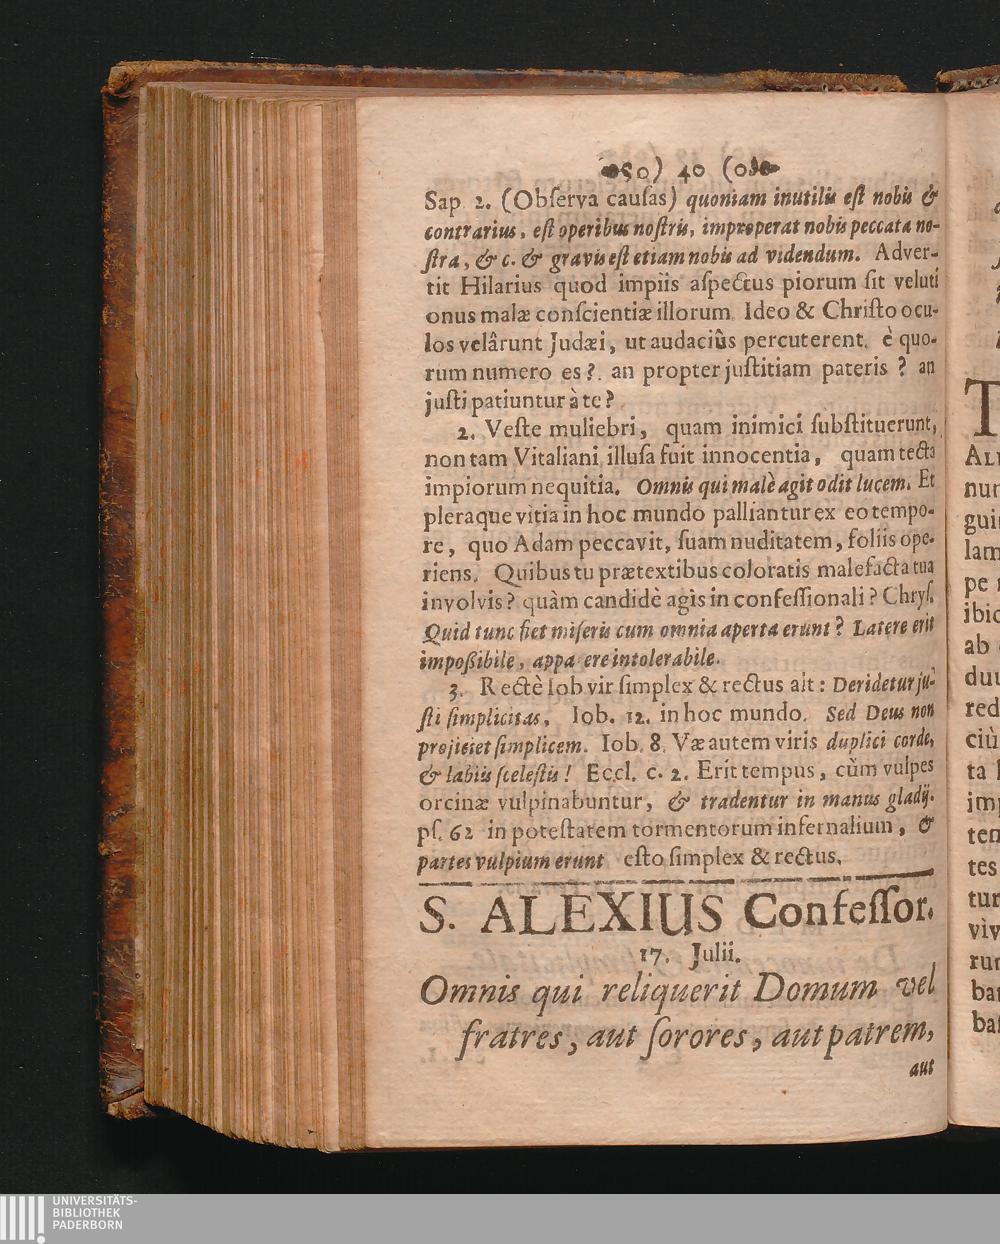 0) 40 (0
Sap 2. (Obſerva cauſas) quoniam inutilis eſt nobis &
contrarius, eſt operibus noſtris, improperat nobis peccata no-
ſtra, & c. & gravis eſt etiam nobis ad videndum. Adver-
tit Hilarius quod impiis aſpectus piorum ſit veluti
onus malæ conſcientiæ illorum. Ideo & Chriſto ocu-
los velârunt Judæi, ut audaciùs percuterent. è quo-
rum numero es?. an propter juſtitiam pateris ? an
juſti patiuntur à te?
2. Veſte muliebri, quam inimici ſubſtituerunt,
non tam Vitaliani illuſa fuit innocentia, quam tecta
impiorum nequitia. Omnis qui malè agit odit lucem. Et
pleraque vitia in hoc mundo palliantur ex eo tempo-
re, quo Adam peccavit, ſuam nuditatem, foliis ope-
riens. Quibus tu prætextibus coloratis malefacta tua
involvis? quàm candidè agis in confeſſionali? Chryſ.
Quid tunc fiet miſeris cum omnia aperta erunt? Latere erit
impoßibile, appa ere intolerabile.
3. Rectè Iob vir ſimplex & rectus ait: Deridetur ju-
ſti ſimplicitas, Iob. 12. in hoc mundo. Sed Deus non
projiciet ſimplicem. Iob. 8. Væ autem viris duplici corde,
& labiis ſceleſtis! Eccl. c. 2. Erit tempus, cùm vulpes
orcinæ vulpinabuntur, & tradentur in manus gladij.
pſ. 62 in poteſtatem tormentorum infernalium, &
partes vulpium erunt eſto ſimplex & rectus.
S. ALEXIUS Confeſſor.
17. Julii.
Omnis qui reliquerit Domum vel
fratres, aut ſorores, aut patrem,
aut
T
ALE
gui
lam
ibic
ab
red
ciù
ta
tes
tur
vìv
bat
UNIVERSITÄTS-
BIBLIOTHEK
PADERBORN